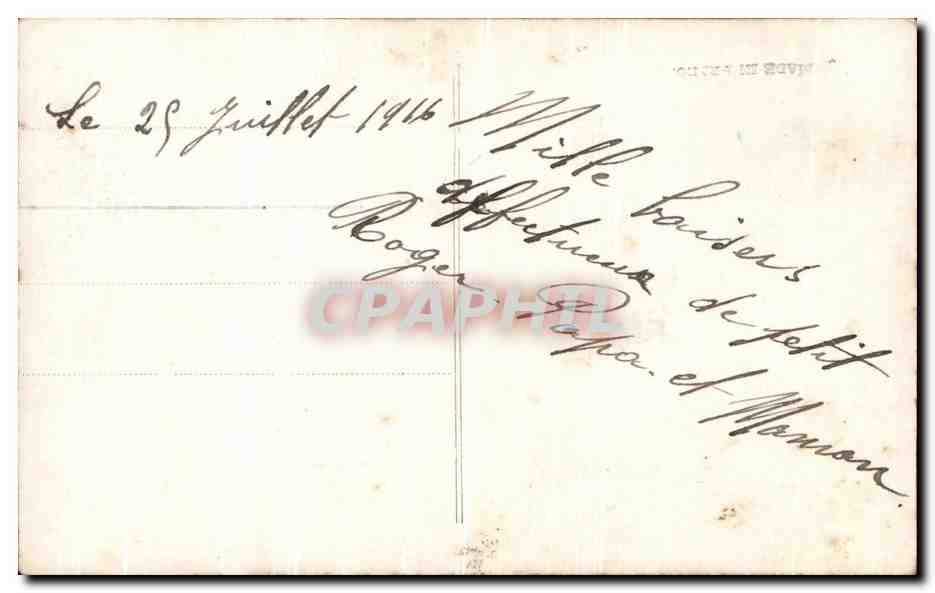 Le 25 Juillet 1916
Mille baisers
affectueux de petit
Roger. Papa. et Maman.
CPAPHIL